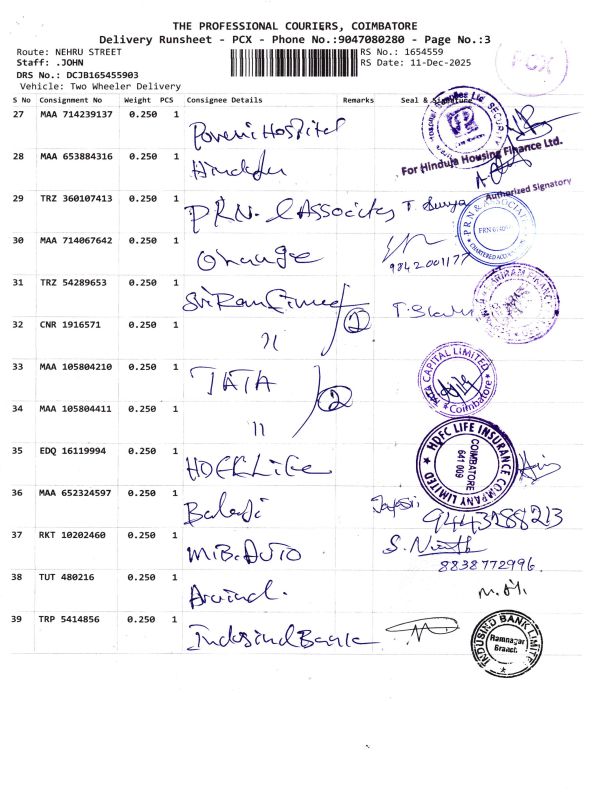 THE PROFESSIONAL COURIERS, COIMBATORE
Delivery Runsheet - PCX - Phone No.:9047080280 - Page No.:3
Route: NEHRU STREET
RS No.: 1654559
Staff: .JOHN
RS Date: 11-Dec-2025
DRS No.: DCJB165455903
Vehicle: Two Wheeler Delivery
PCX
S No Consignment No Weight PCS Consignee Details Remarks Seal & Signature
27 MAA 714239137 0.250 1 Hospital
SECURITY
28 MAA 653884316 0.250 1
For Hinduja Housing Finance Ltd.
Authorized Signatory
29 TRZ 360107413 0.250 1 PRN. & Associates T. Surya
PRN & ASSOCIATES
CHARTERED ACCOUNTANTS
30 MAA 714067642 0.250 1 Orange
9842001177
31 TRZ 54289653 0.250 1 Sri Ram 2
32 CNR 1916571 0.250 1 "
33 MAA 105804210 0.250 1 TATA 2
TATA CAPITAL LIMITED
Coimbatore
34 MAA 105804411 0.250 1 "
35 EDQ 16119994 0.250 1 HDFC Life
HDFC LIFE INSURANCE COMPANY LIMITED
COIMBATORE
641 009
36 MAA 652324597 0.250 1 Balaji
9443188213
37 RKT 10202460 0.250 1 M.B. AUTO
8838772996
38 TUT 480216 0.250 1 Arvind.
39 TRP 5414856 0.250 1 Indusind Bank
INDUSIND BANK LIMITED
Ramnagar
Branch